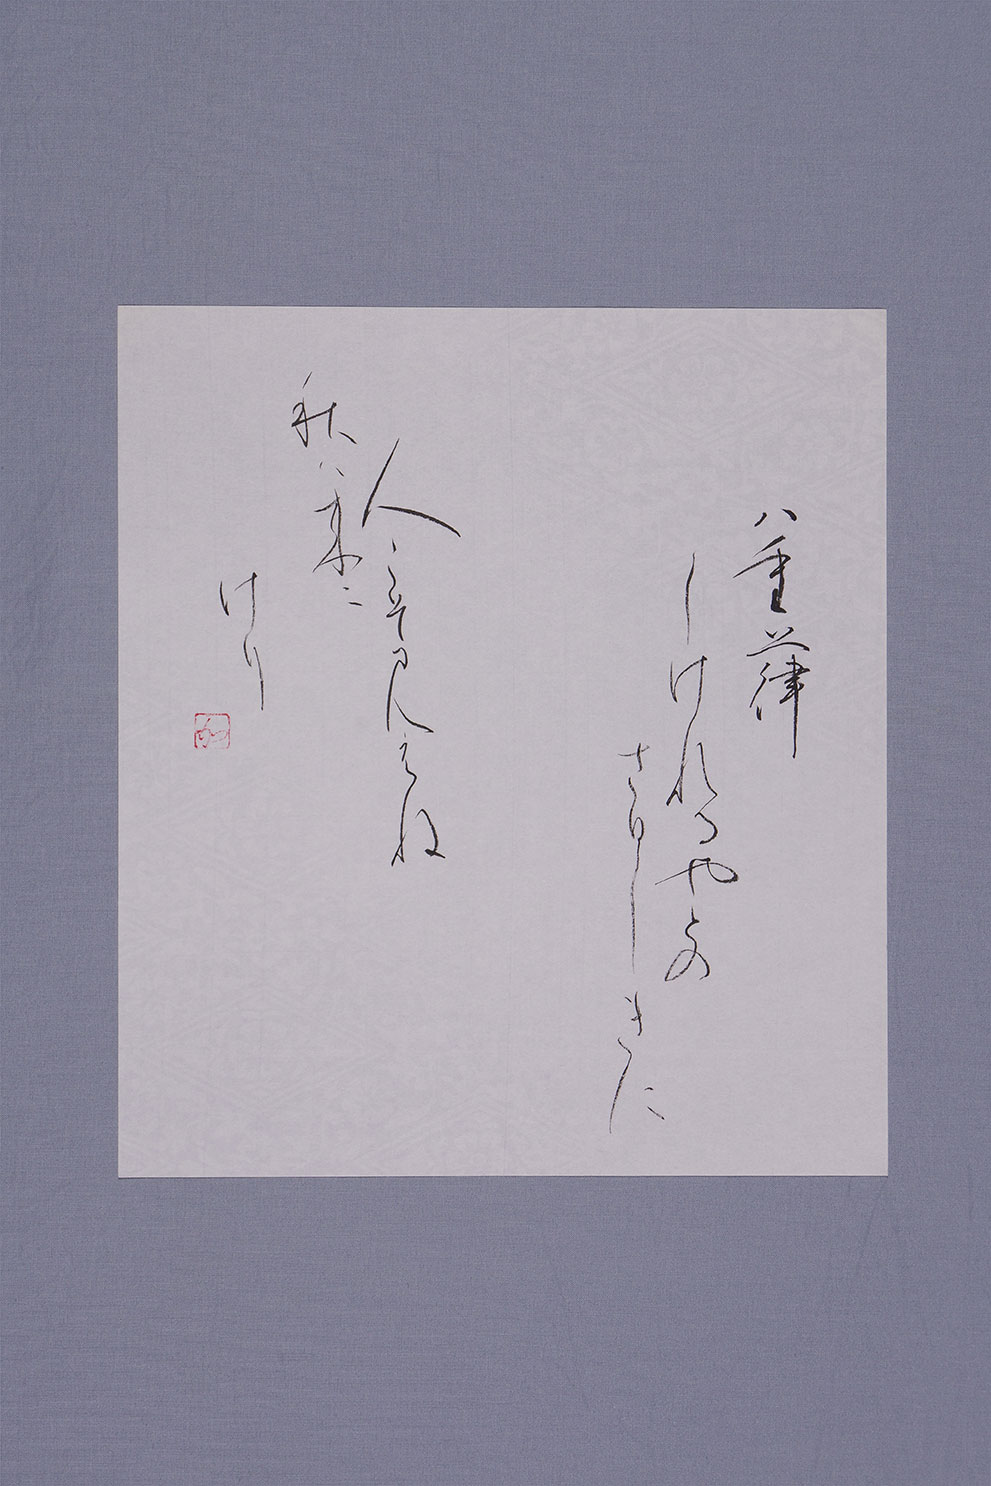 八重葎
しけれるやとの
さひしきに
人こそ見えね
秋は来に
けり